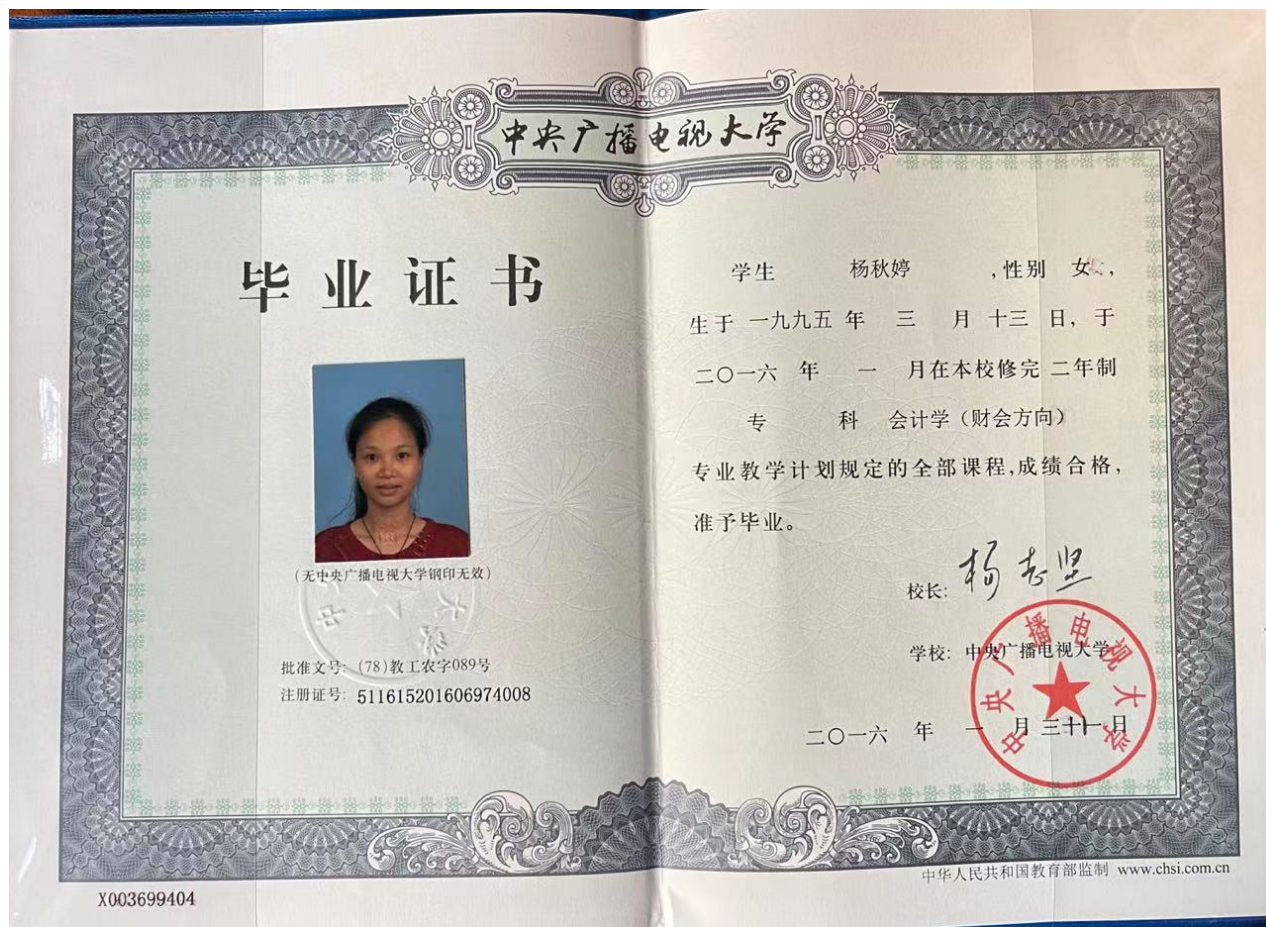 中央广播电视大学
毕业证书
(无中央广播电视大学钢印无效)
批准文号: (78)教工农字089号
注册证号: 511615201606974008
学生 杨秋婷 ,性别 女,
生于 一九九五 年 三 月 十三 日, 于
二〇一六 年 一 月在本校修完 二年制
专 科 会计学（财会方向）
专业教学计划规定的全部课程,成绩合格,
准予毕业。
校长: 杨志坚
学校: 中央广播电视大学
中央广播电视大学
二〇一六 年 一 月 三十一 日
中华人民共和国教育部监制 www.chsi.com.cn
X003699404